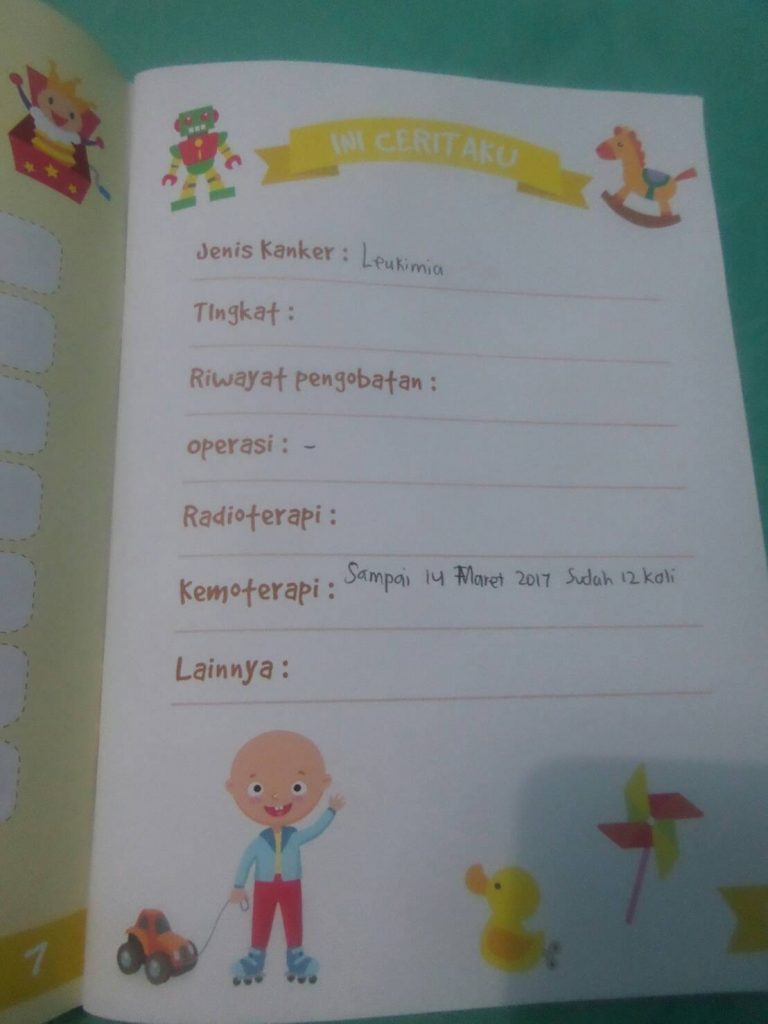 INI CERITAKU
Jenis Kanker : Leukimia
TIngkat :
Riwayat pengobatan :
operasi : -
Radioterapi :
Kemoterapi : Sampai 14 Maret 2017 Sudah 12 kali
Lainnya :
7